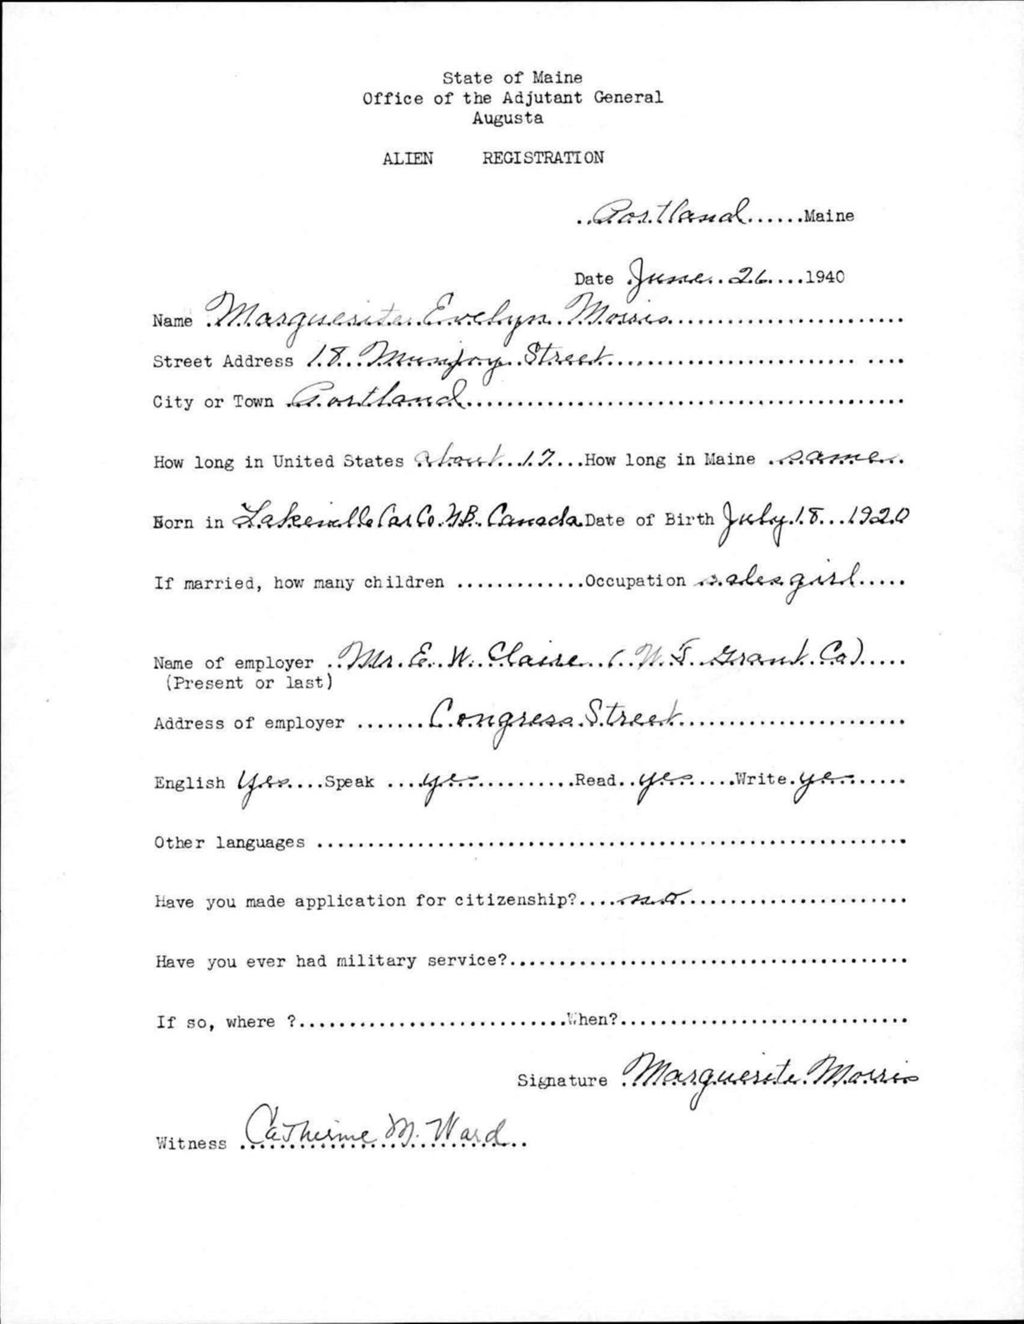 State of Maine
Office of the Adjutant General
Augusta
ALIEN REGISTRATION
..Portland......Maine
Date June..26....1940
Name Marguerite Evelyn Morris
Street Address 18 Munjoy Street
City or Town Portland
How long in United States about 17....How long in Maine ..same..
Born in Lakeville Car Co. N.B. Canada Date of Birth July 18...1920
If married, how many children .............Occupation salesgirl.....
Name of employer ..Mr. E. W. Claire (W. T. Grant Co).....
(Present or last)
Address of employer .......Congress Street
English Yes....Speak ....yes...........Read..yes.....Write.yes......
Other languages
Have you made application for citizenship?....no
Have you ever had military service?
If so, where ?...........................When?
Signature Marguerite Morris
Witness Catherine M. Ward